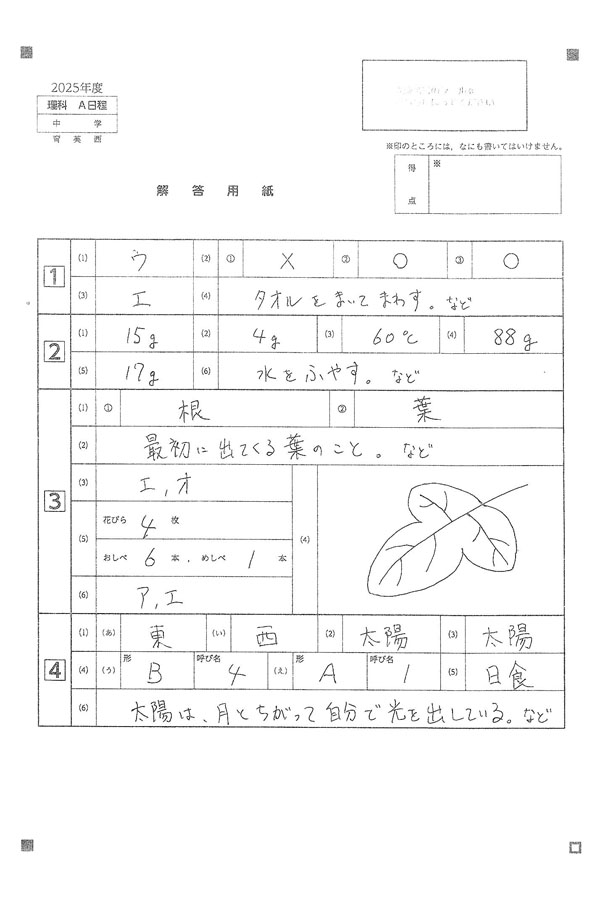 2025年度
理科 A日程
中学
育英西
※印のところには，なにも書いてはいけません。
得点 ※
解答用紙
1
(1) ウ (2) ① × ② ○ ③ ○
(3) エ (4) タオルをまいてまわす。など
2
(1) 15g (2) 4g (3) 60℃ (4) 88g
(5) 17g (6) 水をふやす。など
3
(1) ① 根 ② 葉
(2) 最初に出てくる葉のこと。など
(3) エ,オ
(4)
(5) 花びら 4 枚
おしべ 6 本，めしべ 1 本
(6) ア,エ
4
(1) (あ) 東 (い) 西 (2) 太陽 (3) 太陽
(4) (う) 形 B 呼び名 4 (え) 形 A 呼び名 1 (5) 日食
(6) 太陽は、月とちがって自分で光を出している。など